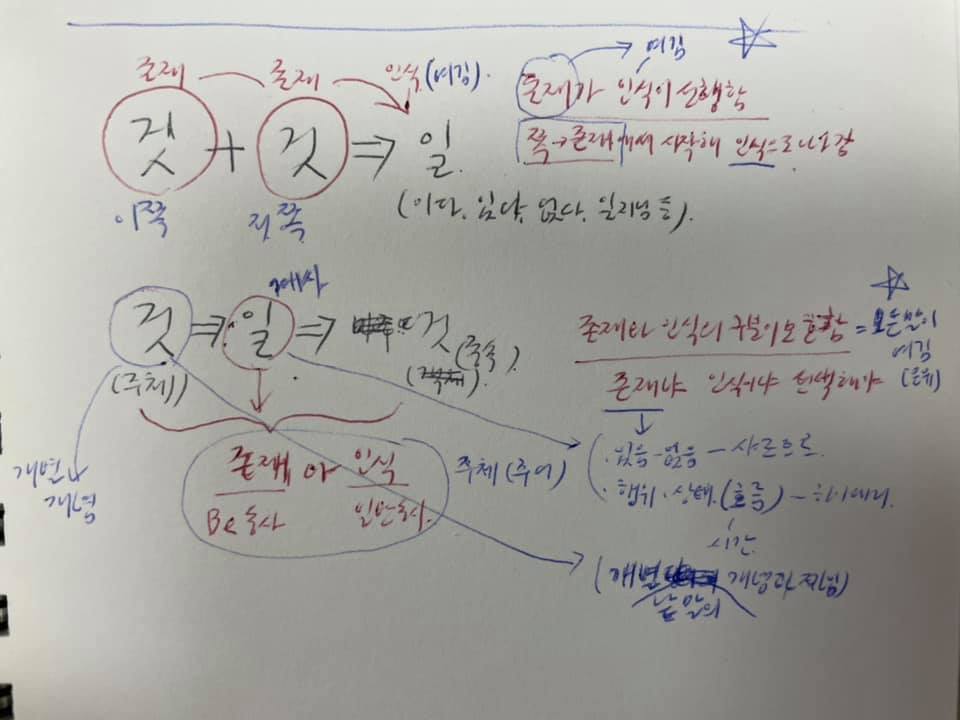 존재 존재 인식 (여김).
것 + 것 ⇒ 일.
이쪽 저쪽
(이다, 있다, 없다, 일어남 등).
여김
존재가 인식이 선행함
쪽→존재에서 시작해 인식으로 나아감
것 ⇒ 일 ⇒ 것
(주체) (종속)
개별
개념
존재 아 인식
Be동사 일반동사.
존재와 인식의 구분이 모호함 = 모든 말이
여김
존재냐 인식이냐 선택해야
주체(주어)
(. 있음 - 없음 - 사르트르.
. 행위. 상태. (흐름) -
시간.
(개별 개념과
낱말의